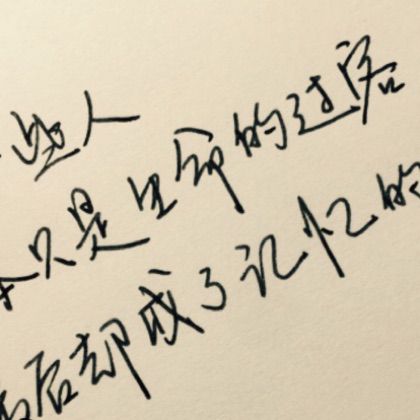 些人
只是生命的过客
后却成了记忆的